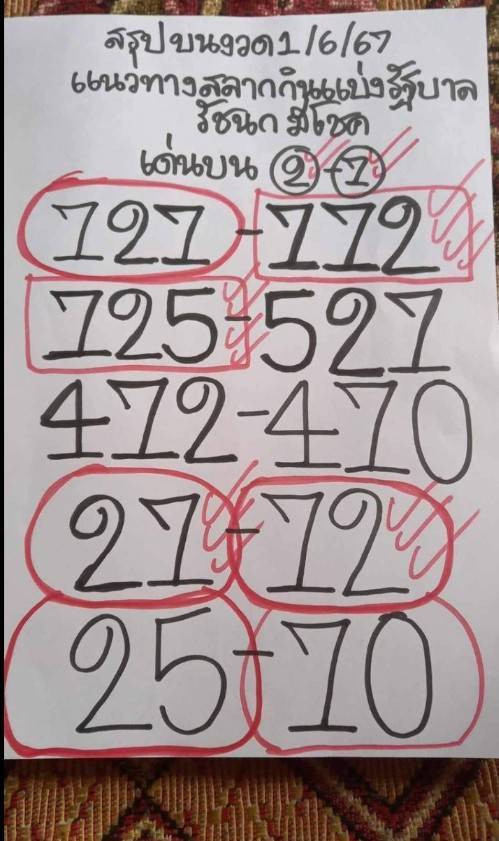 สรุปบนงวด1/6/67
แนวทางสลากกินแบ่งรัฐบาล
รัชนก มีโชค
เด่นบน 2-7
727-772
725-527
472-470
27-72
25-70